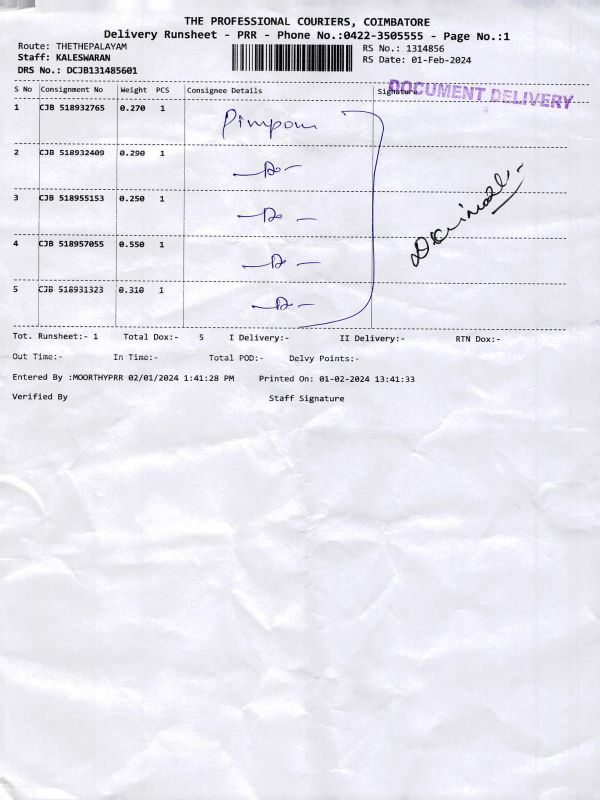 THE PROFESSIONAL COURIERS, COIMBATORE
Delivery Runsheet - PRR - Phone No.:0422-3505555 - Page No.:1
Route: THETHEPALAYAM RS No.: 1314856
Staff: KALESWARAN RS Date: 01-Feb-2024
DRS No.: DCJB131485601
S No Consignment No Weight PCS Consignee Details Signature
DOCUMENT DELIVERY
1 CJB 518932765 0.270 1
2 CJB 518932409 0.290 1 -Do-
3 CJB 518955153 0.250 1 -Do-
4 CJB 518957055 0.550 1 -Do-
5 CJB 518931323 0.310 1 -Do-
Tot. Runsheet:- 1 Total Dox:- 5 I Delivery:- II Delivery:- RTN Dox:-
Out Time:- In Time:- Total POD:- Delvy Points:-
Entered By :MOORTHYPRR 02/01/2024 1:41:28 PM Printed On: 01-02-2024 13:41:33
Verified By Staff Signature